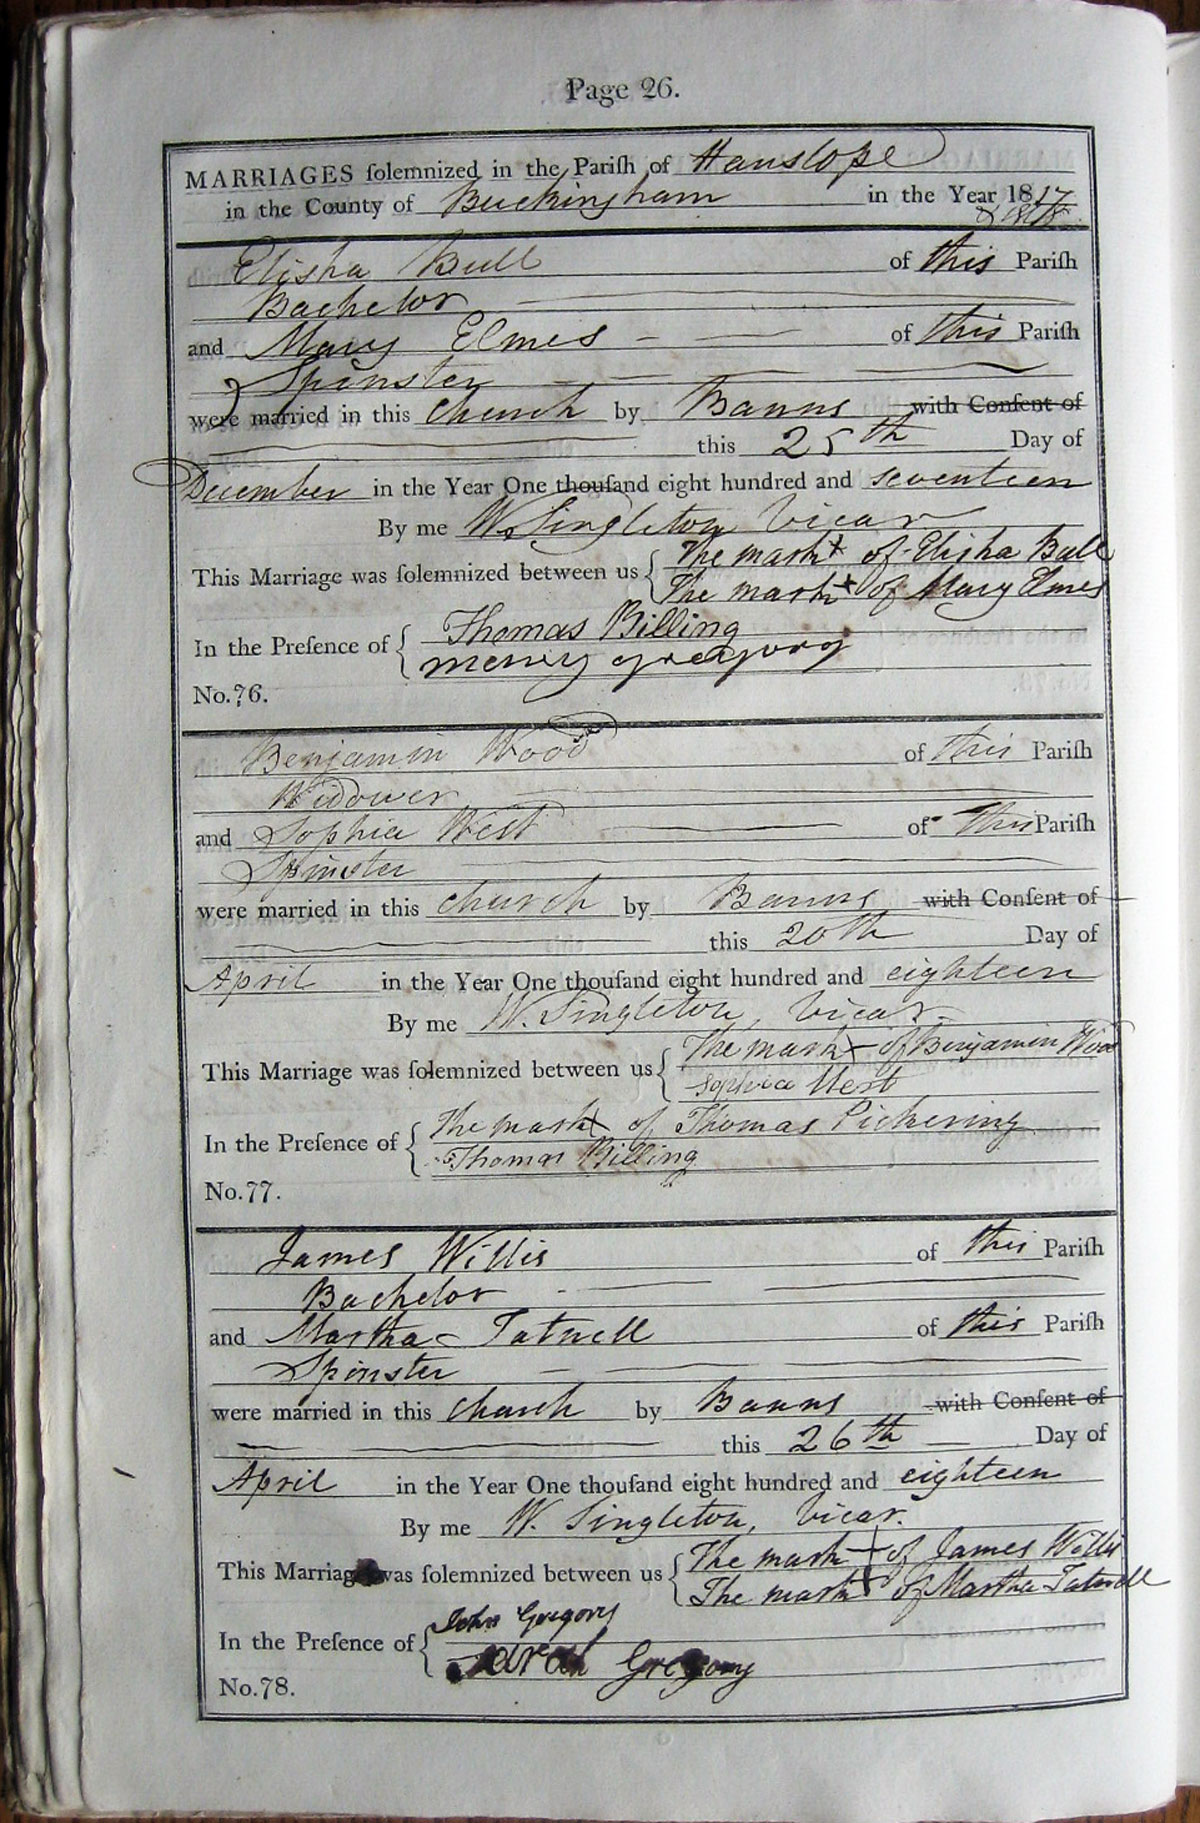 Page 26.
MARRIAGES ſolemnized in the Pariſh of Hanslope
in the County of Buckingham in the Year 1817
& 1818
Elisha Bull of this Pariſh
Bachelor
and Mary Elmes of this Pariſh
Spinster
were married in this church by Banns with Conſent of
this 25th Day of
December in the Year One thouſand eight hundred and seventeen
By me W. Singleton Vicar
This Marriage was ſolemnized between us { The mark X of Elisha Bull
The mark X of Mary Elmes
In the Preſence of { Thomas Billing
merry gregory
No. 76.
Benjamin Wood of this Pariſh
Widower
and Sophia West of this Pariſh
Spinster
were married in this church by Banns with Conſent of
this 20th Day of
April in the Year One thouſand eight hundred and eighteen
By me W. Singleton, Vicar.
This Marriage was ſolemnized between us { The mark X of Benjamin Wood
Sophia West
In the Preſence of { The mark X of Thomas Pickering
Thomas Billing
No. 77.
James Willis of this Pariſh
Bachelor
and Martha Tatnell of this Pariſh
Spinster
were married in this church by Banns with Conſent of
this 26th Day of
April in the Year One thouſand eight hundred and eighteen
By me W. Singleton, Vicar.
This Marriage was ſolemnized between us { The mark + of James Willis
The mark + of Martha Tatnell
In the Preſence of { John Gregory
Sarah Gregory
No. 78.